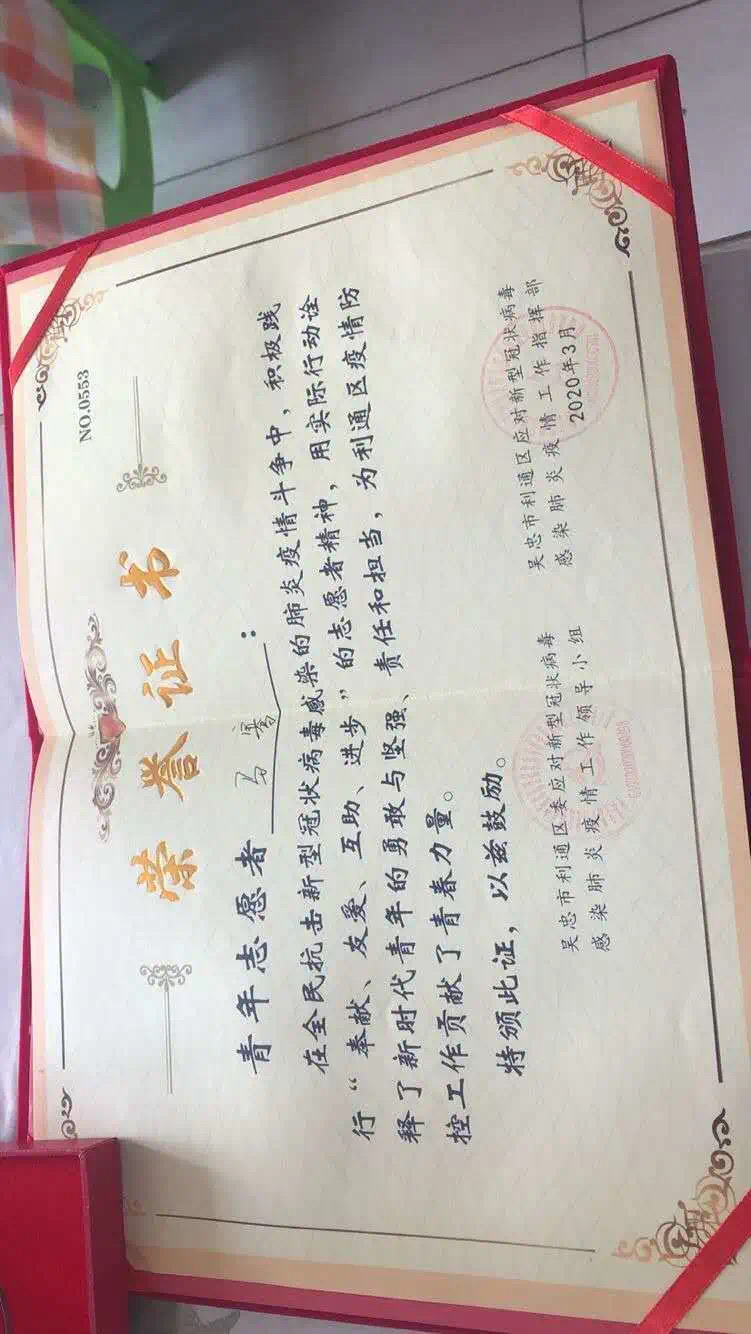 NO.0553
荣誉证书
青年志愿者马骞：
在全民抗击新型冠状病毒感染的肺炎疫情斗争中，积极践
行“奉献、友爱、互助、进步”的志愿者精神，用实际行动诠
释了新时代青年的勇敢与坚强、责任和担当，为利通区疫情防
控工作贡献了青春力量。
特颁此证，以兹鼓励。
吴忠市利通区委应对新型冠状病毒
感染肺炎疫情工作领导小组
吴忠市利通区应对新型冠状病毒
感染肺炎疫情工作指挥部
2020年3月